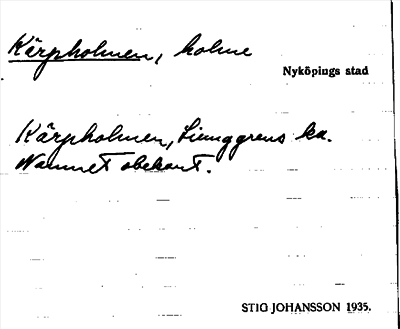 Kärpholmen, holme
Nyköpings stad
Kärpholmen, Liunggrens ka.
Namnet obekant.
STIG JOHANSSON 1935.